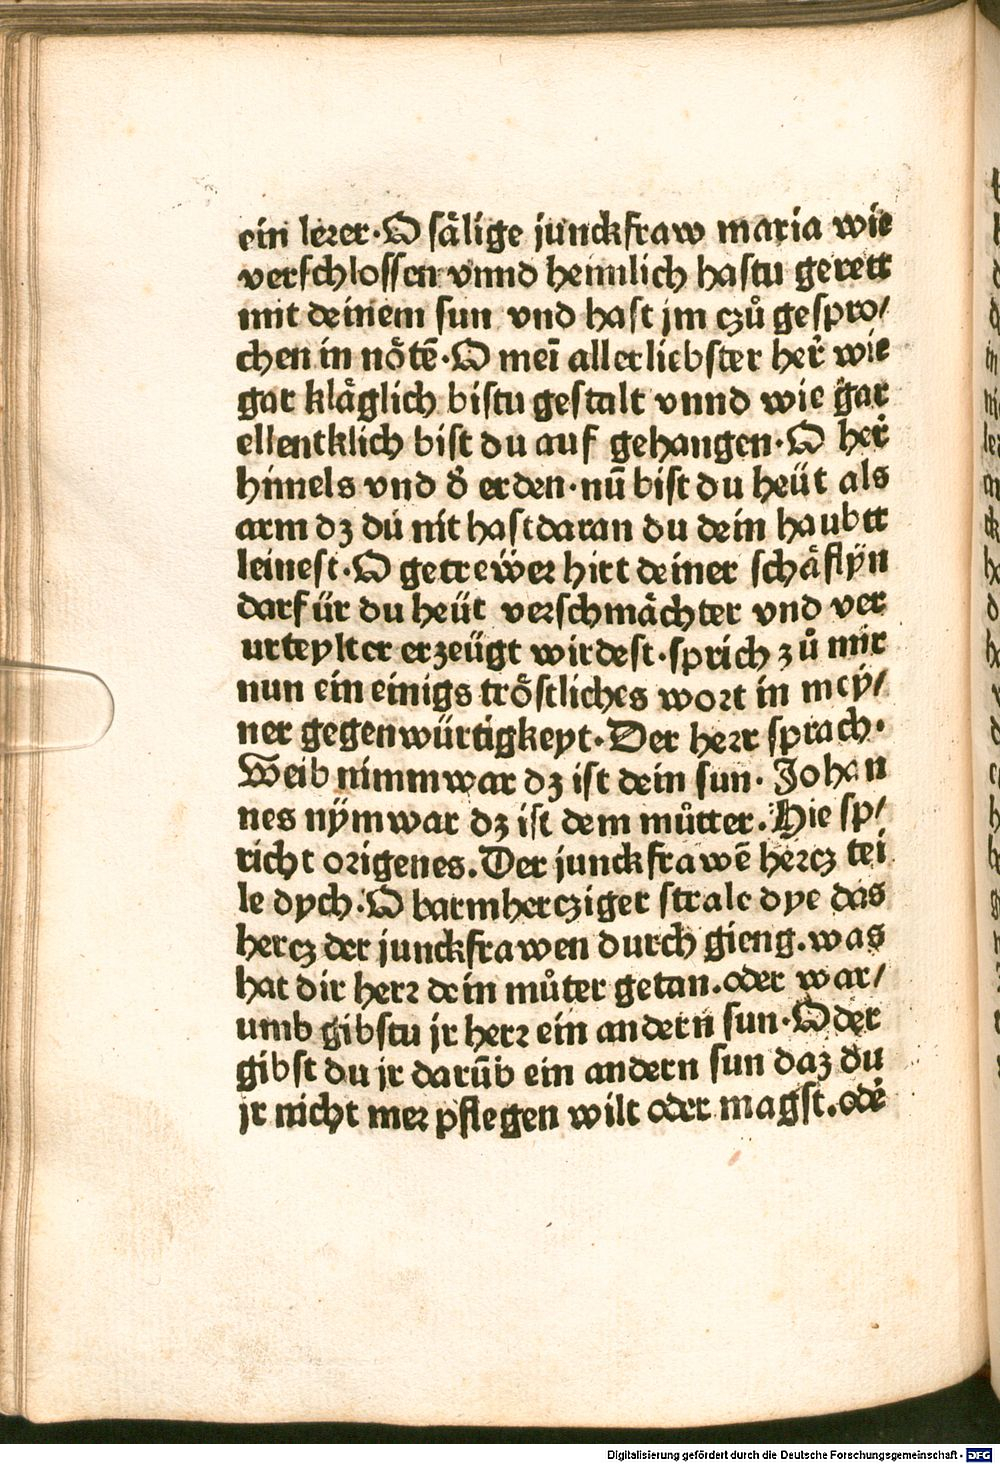 ein lerer·O sälige junckfraw maria wie
verschlossen vnnd heimlich hastu gerett
mit deinem sun vnd hast jm czů gespro/
chen in nötē·O meī allerliebster her̃ wie
gar kläglich bistu gestalt vnnd wie gar
ellentklich bist du auf gehangen·O her̃
himels vnd d̕ erden·nū bist du heüt als
arm dz du nit hast daran du dein haubtt
leinest·O getreẅer hirt deiner schäflÿn
darfür du heüt verschmächter vnd ver
urteylter erzeügt wirdest·sprich zů mir
nun ein einigs tröstliches wort in mey/
ner gegenwürtigkeyt·Der herr sprach·
Weib nimmwar dz ist dein sun· Johan
nes nÿmwar dz ist dem můtter·Hie sp/
richt origenes.Der junckfrawē hercz tei
le dych·O barmhercziger strale dye das
hercz der junckfrawen durch gieng.was
hat dir herr dein můter getan.oder war/
umb gibstu jr herr ein andern sun·Oder
gibst du jr darūb ein andern sun daz du
jr nicht mer pflegen wilt oder magst.od̕
Digitalisierung gefördert durch die Deutsche Forschungsgemeinschaft - DFG